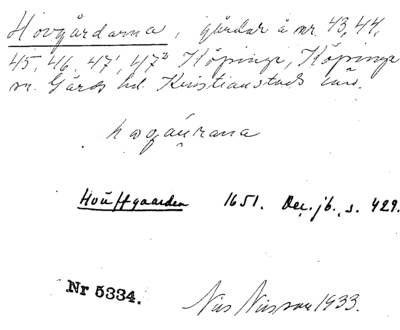 Hovgårdarna, gårdar å nr 43, 44,
45, 46, 47¹, 47² Köpinge, Köpinge
sn. Gärds hd Kristianstads län.
hωgáurana
Hoüffgaarden 1651. Dec. jb. s. 429.
Nr 5334.
Nils Nilsson 1933.